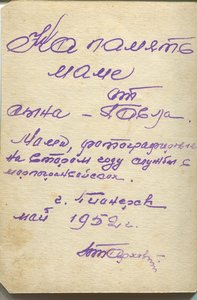 На память
маме
от
сына - Павла.
Мама, фотографировался
на втором году службы с
г. Пионерск
май 1952 г.